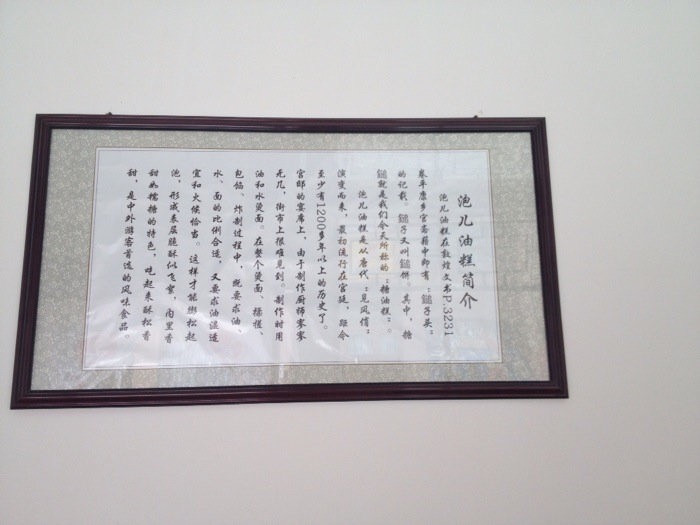 泡儿油糕简介
泡儿油糕在敦煌文书P.3231
卷平康乡官斋籍中即有“鎚子头”
的记载。鎚子又叫鎚饼。其中,糖
鎚就是我们今天所称的“糖油糕”。
泡儿油糕是从唐代“见风消”
演变而来,最初流行在宫廷,距今
至少有1200多年以上的历史了。
官邸的宴席上,由于制作厨师寥寥
无几,街市上很难见到。制作时用
油和水烫面。在整个烫面、揉搓、
包馅、炸制过程中,既要求油、
水、面的比例合适,又要求油温适
宜和火候恰当。这样才能膨松起
泡,形成表层脆酥似飞蜜,内里香
甜如糯糖的特色,吃起来酥松香
甜,是中外游客首选的风味食品。